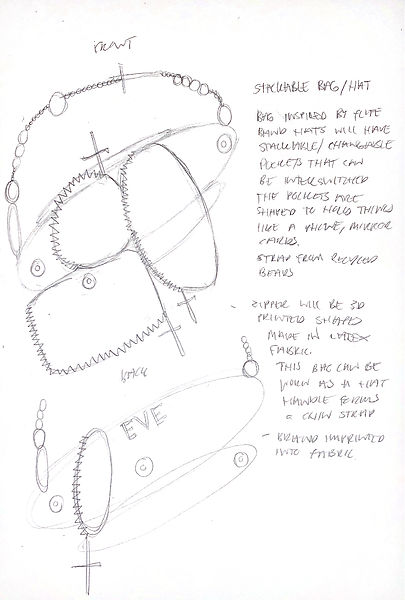 FRONT
STACKABLE BAG/HAT
BAG INSPIRED BY FLUTE
BAND HATS WILL HAVE
STACKABLE/CHANGABLE
POCKETS THAT CAN
BE INTERSWITCHED
THE POCKETS ARE
SHAPED TO HOLD THINGS
LIKE A PHONE, MIRROR
CARDS.
STRAP FROM RECYCLED
BEADS
- ZIPPER WILL BE 3D
PRINTED SHAPED
MADE IN
FABRIC.
THIS BAG CAN BE
WORN AS A HAT
HANDLE FORMS
A CHIN STRAP
- BRAND IMPRINTED
INTO FABRIC
BACK
EVE